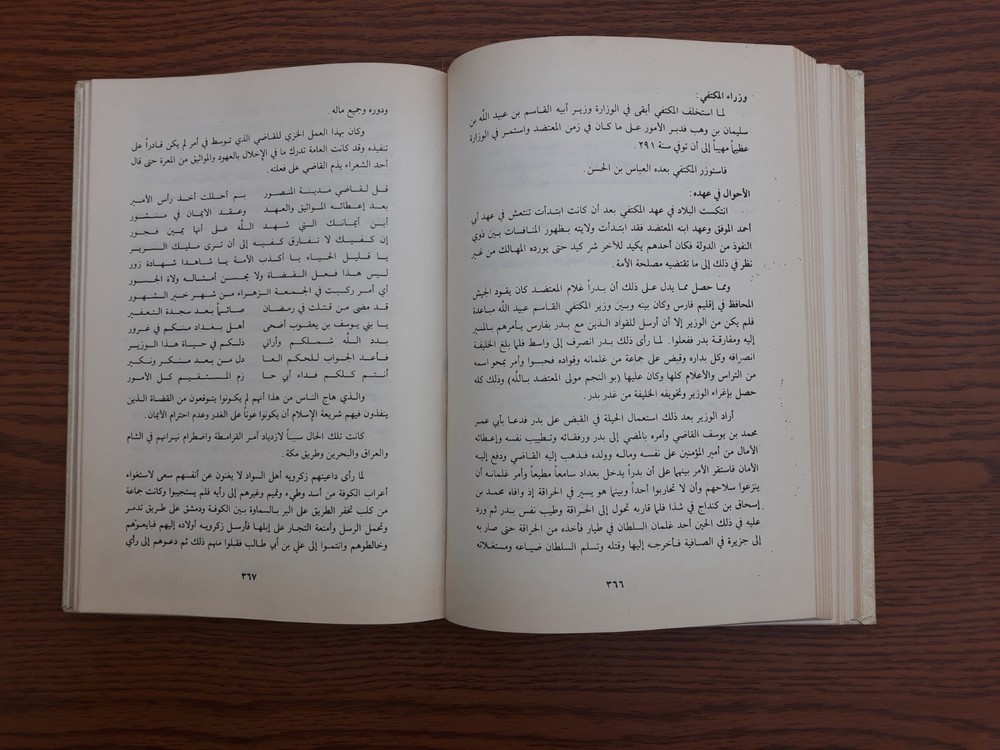 وزراء المكتفي:
لما استخلف المكتفي أبقى في الوزارة وزير أبيه القاسم بن عبيد اللّه بن
سليمان بن وهب فدبر الأمور على ما كان في زمن المعتضد واستمر في الوزارة
عظيماً مهيباً إلى أن توفي سنة ٢٩١.
فاستوزر المكتفي بعده العباس بن الحسن.
الأحوال في عهده:
انتكست البلاد في عهد المكتفي بعد أن كانت ابتدأت تنتعش في عهد أبي
أحمد الموفق وعهد ابنه المعتضد فقد ابتدأت ولايته بظهور المنافسات بين ذوي
النفوذ من الدولة فكان أحدهم يكيد للآخر شر كيد حتى يورده المهالك من غير
نظر في ذلك إلى ما تقتضيه مصلحة الأمة.
ومما حصل مما يدل على ذلك أن بدراً غلام المعتضد كان يقود الجيش
المحافظ في إقليم فارس وكان بينه وبين وزير المكتفي القاسم عبيد اللّه مباعدة
فلم يكن من الوزير إلا أن أرسل للقواد الذين مع بدر بفارس يأمرهم بالمسير
إليه ومفارقة بدر ففعلوا. لما رأى ذلك بدر انصرف إلى واسط فلما بلغ الخليفة
انصرافه وكل بداره وقبض على جماعة من غلمانه وقواده فحبسوا وأمر بمحو اسمه
من التراس والأعلام كلها وكان عليها (بو النجم مولى المعتضد باللّه) وذلك كله
حصل بإغراء الوزير وتخويفه الخليفة من غدر بدر.
أراد الوزير بعد ذلك استعمال الحيلة في القبض على بدر فدعا بأبي عمر
محمد بن يوسف القاضي وأمره بالمضي إلى بدر ورفقائه وتطييب نفسه وإعطائه
الأمان من أمير المؤمنين على نفسه وماله وولده فذهب إليه القاضي ودفع إليه
الأمان فاستقر الأمر بينهما على أن بدراً يدخل بغداد سامعاً مطيعاً وأمر غلمانه أن
ينزعوا سلاحهم وأن لا تحاربوا أحداً وبينما هو يسير في الحراقة إذ وافاه محمد بن
إسحاق بن كنداج في شذا فلما قاربه تحول إلى الحراقة وطيب نفس بدر ثم ورد
عليه في ذلك الحين أحد غلمان السلطان في طيار فأخذه من الحراقة حتى صار به
إلى جزيرة في الصافية فأخرجه إليها وقتله وتسلم السلطان ضياعه ومستغلاته
٣٦٦
ودوره وجميع ماله.
وكان بهذا العمل الخزي للقاضي الذي توسط في أمر لم يكن قادراً على
تنفيذه وقد كانت العامة تدرك ما في الإخلال بالعهود والمواثيق من المعرة حتى قال
أحد الشعراء يذم القاضي على فعلته.
قل لقاضي مدينة المنصور بم أحللت أخذ رأس الأمير
بعد إعطائه المواثيق والعهد وعقد الايمان في منشور
أين أيمانك التي شهد اللّه على أنها يمين فجور
إن كفيك لا تفارق كفيه إلى أن ترى مليك السرير
يا قليل الحياء يا أكذب الأمة يا شاهداً شهادة زور
ليس هذا فعل القضاة ولا يحسن أمثاله ولاة الجسور
أي أمر ركبت في الجمعة الزهراء من شهر خير الشهور
قد مضى من قتلت في رمضان صائماً بعد سجدة التعفير
يا بني يوسف بن يعقوب أضحى أهل بغداد منكم في غرور
بدد اللّه شملكم وأراني ذلكم في حياة هذا الوزير
فأعد الجواب للحكم العا دل من بعد منكر ونكير
أنتم كلكم فداء أبي حا زم المستقيم كل الأمور
والذي هاج الناس من هذا أنهم لم يكونوا يتوقعون من القضاة الذين
ينفذون فيهم شريعة الإسلام أن يكونوا عوناً على الغدر وعدم احترام الأيمان.
كانت تلك الحال سبباً لازدياد أمر القرامطة واضطرام نيرانهم في الشام
والعراق والبحرين وطريق مكة.
لما رأى داعيتهم زكرويه أهل السواد لا يغنون عن أنفسهم سعى لاستغواء
أعراب الكوفة من أسد وطيء وتميم وغيرهم إلى رأيه فلم يستجيبوا وكانت جماعة
من كلب تخفر الطريق على البر بالسماوة بين الكوفة ودمشق على طريق تدمر
وتحمل الرسل وأمتعة التجار على إبلها فأرسل زكرويه أولاده إليهم فبايعوهم
وخالطوهم وانتموا إلى علي بن أبي طالب فقبلوا منهم ذلك ثم دعوهم إلى رأي
٣٦٧